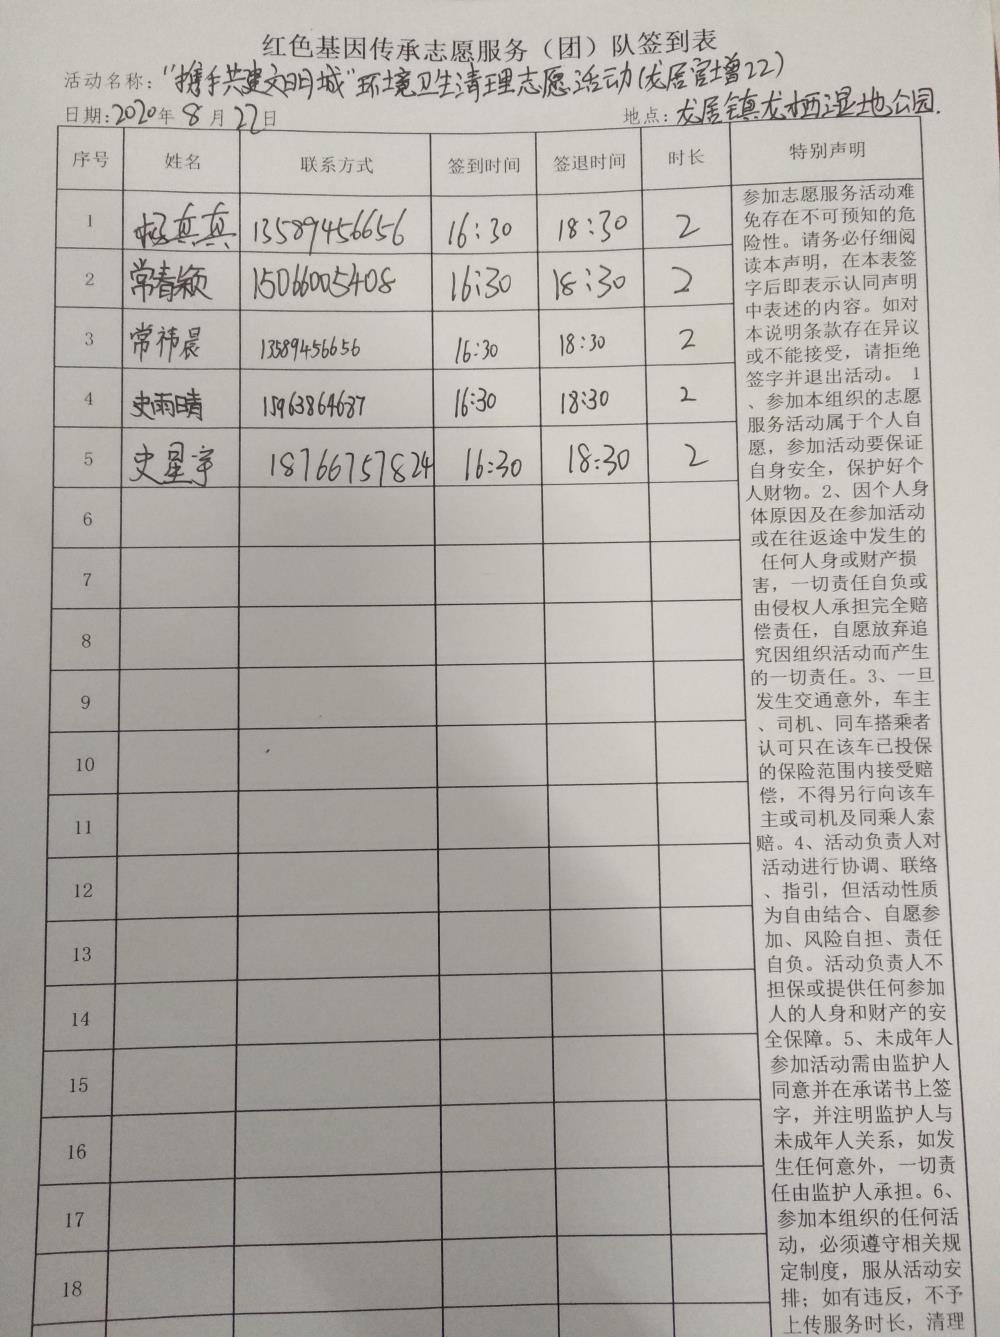 红色基因传承志愿服务（团）队签到表
活动名称："携手共建文明城"环境卫生清理志愿活动(龙居官增22)
日期:2020年8月22日 地点:龙居镇龙栖湿地公园.
序号 姓名 联系方式 签到时间 签退时间 时长 特别声明
1 杨真真 13589456656 16:30 18:30 2
2 常春颖 15066005408 16:30 18:30 2
3 常祎晨 13589456656 16:30 18:30 2
4 史雨晴 15963864687 16:30 18:30 2
5 史星宇 18766757824 16:30 18:30 2
6
7
8
9
10
11
12
13
14
15
16
17
18
参加志愿服务活动难
免存在不可预知的危
险性。请务必仔细阅
读本声明，在本表签
字后即表示认同声明
中表述的内容。如对
本说明条款存在异议
或不能接受，请拒绝
签字并退出活动。 1
、参加本组织的志愿
服务活动属于个人自
愿，参加活动要保证
自身安全，保护好个
人财物。2、因个人身
体原因及在参加活动
或在往返途中发生的
任何人身或财产损
害，一切责任自负或
由侵权人承担完全赔
偿责任，自愿放弃追
究因组织活动而产生
的一切责任。3、一旦
发生交通意外，车主
、司机、同车搭乘者
认可只在该车已投保
的保险范围内接受赔
偿，不得另行向该车
主或司机及同乘人索
赔。4、活动负责人对
活动进行协调、联络
、指引，但活动性质
为自由结合、自愿参
加、风险自担、责任
自负。活动负责人不
担保或提供任何参加
人的人身和财产的安
全保障。5、未成年人
参加活动需由监护人
同意并在承诺书上签
字，并注明监护人与
未成年人关系，如发
生任何意外，一切责
任由监护人承担。6、
参加本组织的任何活
动，必须遵守相关规
定制度，服从活动安
排；如有违反，不予
上传服务时长，清理